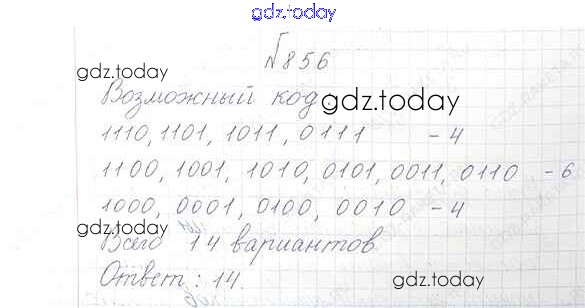 gdz.today
№856
gdz.today
Возможный код
gdz.today
1110, 1101, 1011, 0111 - 4
1100, 1001, 1010, 0101, 0011, 0110 - 6
1000, 0001, 0100, 0010 - 4
gdz.today
Всего 14 вариантов
Ответ: 14.
gdz.today